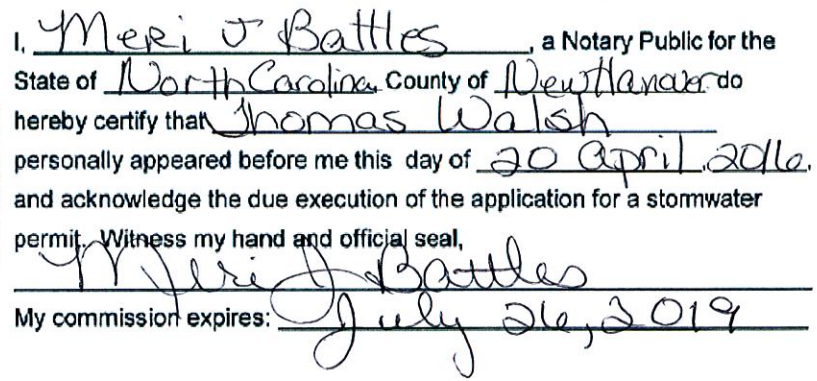 I, Meri J Battles, a Notary Public for the
State of North Carolina County of New Hanover do
hereby certify that Thomas Walsh
personally appeared before me this day of 20 April, 2016,
and acknowledge the due execution of the application for a stormwater
permit. Witness my hand and official seal,
Meri J Battles
My commission expires: July 26, 2019